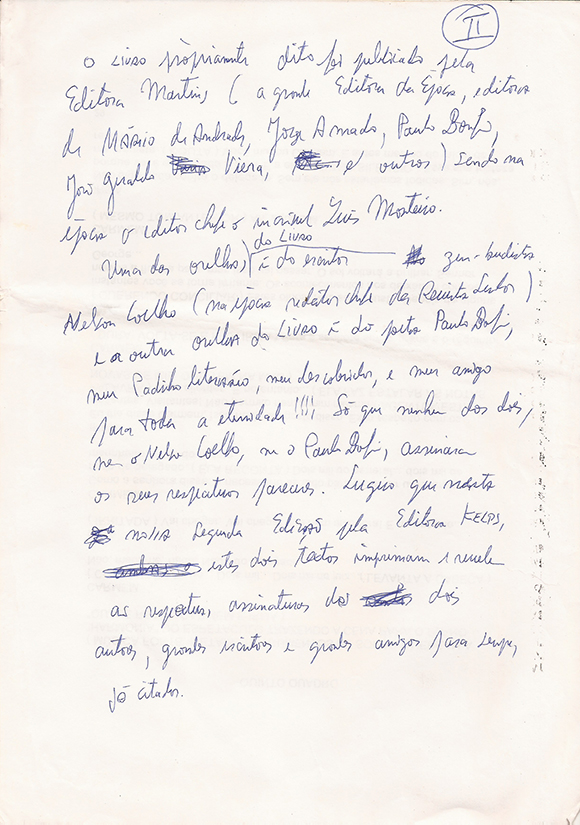 II
O LIVRO pròpriamente dito foi publicado pela
Editora Martins (a grande Editora da Época, editora
de MÁRIO de Andrade, Jorge Amado, Paulo Bomfim,
João Geraldo Vieira, e outros) sendo na
época o editor chefe o incrível Luís Monteiro.
Uma das orelhas do LIVRO é do escritor zen-budista
Nelson Coelho (na época redator chefe da Revista )
e a outra orelha do Livro é do poeta Paulo Bomfim,
meu Padrinho literário, meu descobridor, e meu amigo
para toda a eternidade!!!! Só que nenhum dos dois,
nem o Nelson Coelho, nem o Paulo Bomfim, assinaram
os seus respectivos pareceres. Sugiro que nesta
nova segunda Edição pela Editora KELPS,
estes dois textos imprimam e revele
as respectivas assinaturas dos dois
autores, grandes escritores e grandes amigos para sempre,
já citados.